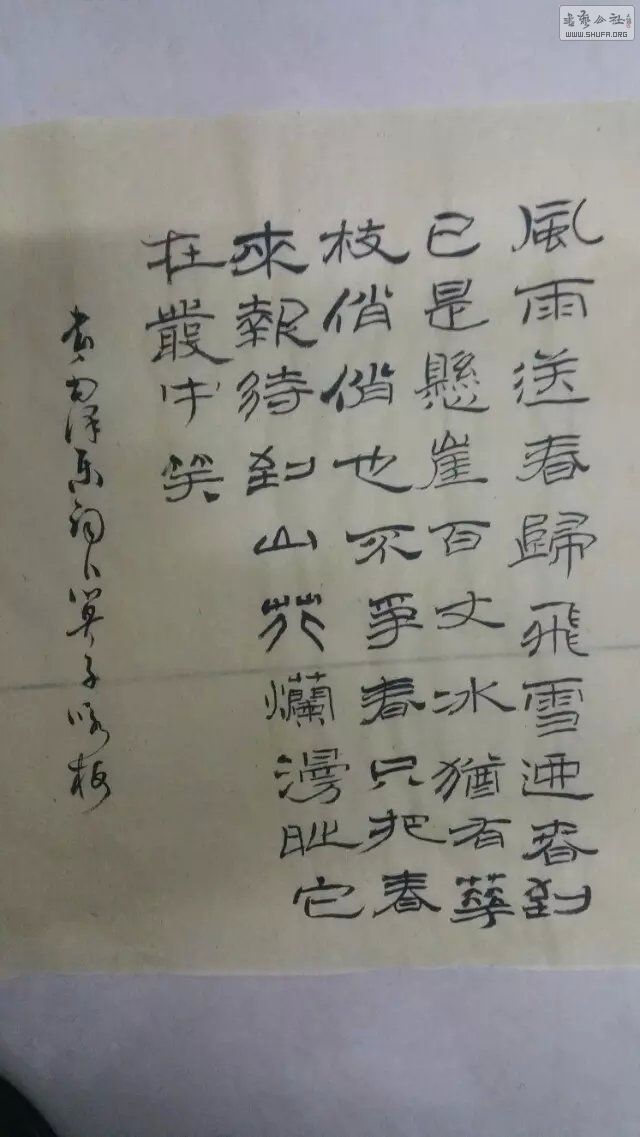 風雨送春歸飛雪迎春到
已是懸崖百丈冰猶有華
枝俏俏也不爭春只把春
來報待到山花爛漫時它
在叢中笑
书毛泽东词卜算子咏梅
书艺公社
WWW.SHUFA.ORG